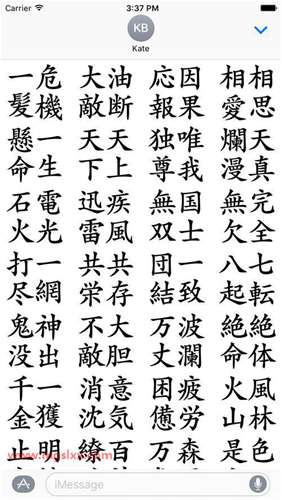 Carrier
3:37 PM
KB
Kate
危機一髪
油断大敵
因果応報
相思相愛
一生懸命
天上天下
唯我独尊
天真爛漫
電光石火
疾風迅雷
国士無双
完全無欠
一網打尽
共存共栄
一致団結
七転八起
神出鬼没
大胆不敵
波瀾万丈
絶体絶命
一獲千金
意気消沈
疲労困憊
風林火山
明止
百繚
森万
色是
iMessage